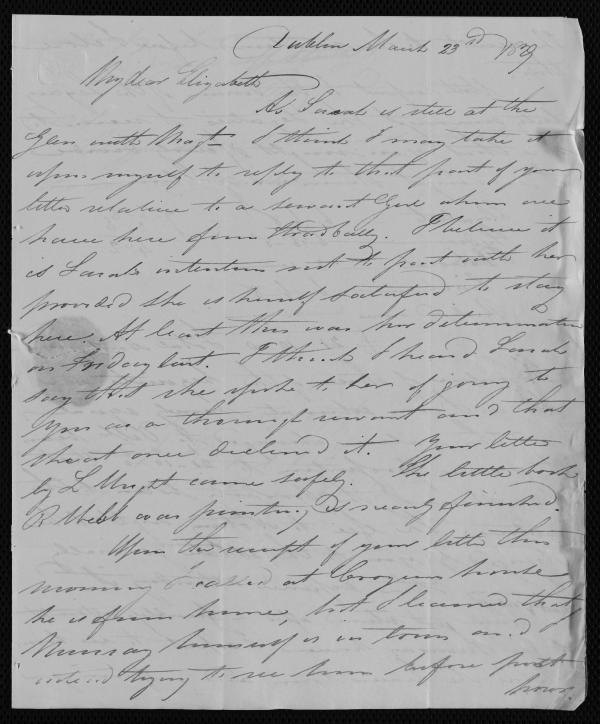 Dublin March 23rd 1839
My dear Elizabeth
As Sarah is still at the
Glen with Magt I think I may take it
upon myself to reply to that part of your
letter relative to a servant Girl whom we
have here from I believe it
is Sarahs intention not to part with her
provided she is herself satisfied to stay
here. At least this was her determination
on Friday last. I think I heard Sarah
say that she spoke to her of going to
you as a thorough servant and that
she at once declined it. Your letter
by L came safely. The little book
R Webb was printing is nearly finished.
Upon the receipt of your letter this
morning I called at house
he is from home, but I learned that
Murray himself is in town and
trying to see him before post
hour.